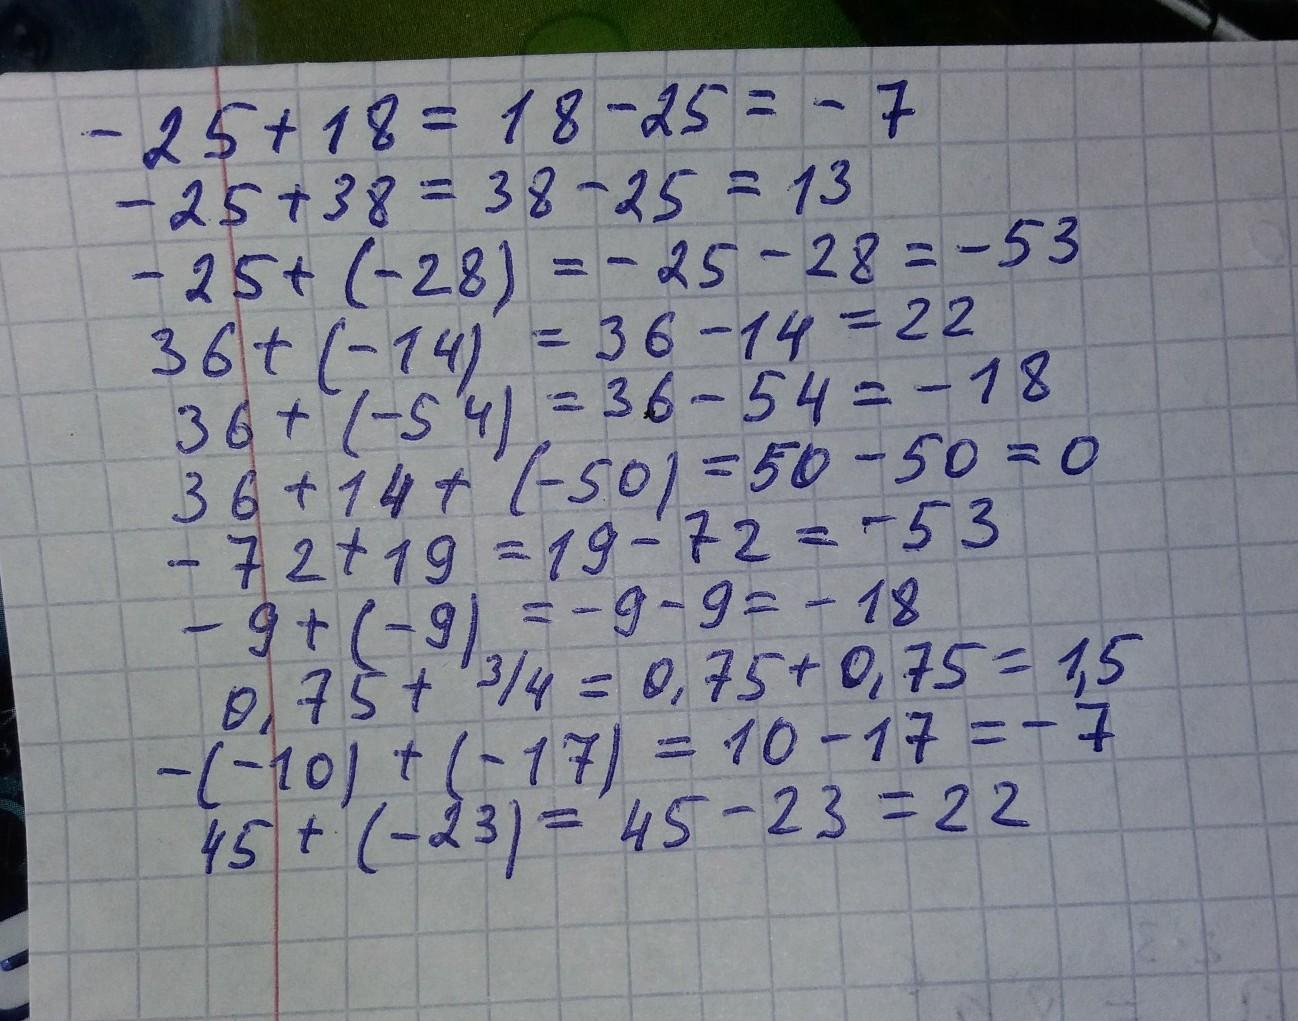 -25+18 = 18-25 = -7
-25+38 = 38-25 = 13
-25+(-28) = -25-28 = -53
36+(-14) = 36-14 = 22
36+(-54) = 36-54 = -18
36+14+(-50) = 50-50 = 0
-72+19 = 19-72 = -53
-9+(-9) = -9-9 = -18
0,75+3/4 = 0,75+0,75 = 1,5
-(-10)+(-17) = 10-17 = -7
45+(-23) = 45-23 = 22